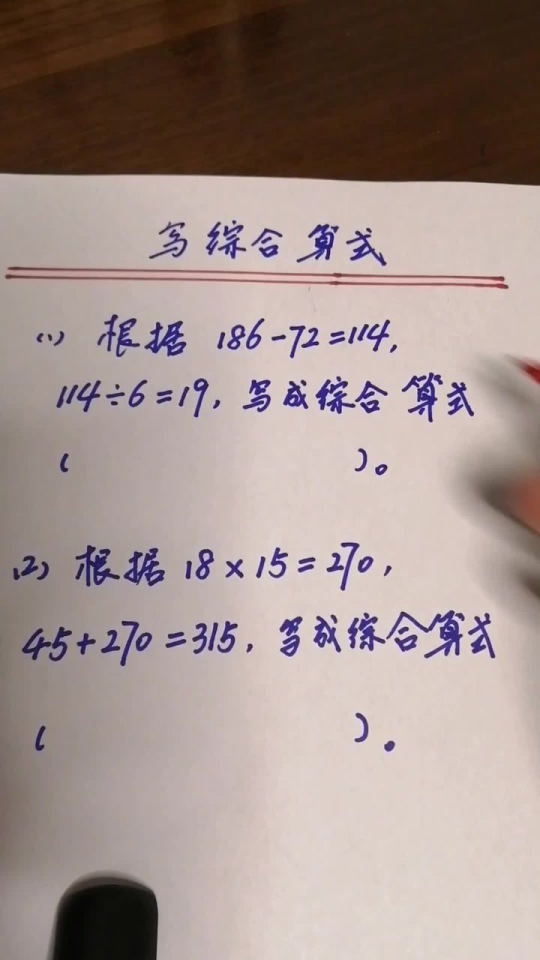 写综合算式
(1) 根据 186-72=114,
114÷6=19, 写成综合算式
(        )。
(2) 根据 18×15=270,
45+270=315, 写成综合算式
(        )。